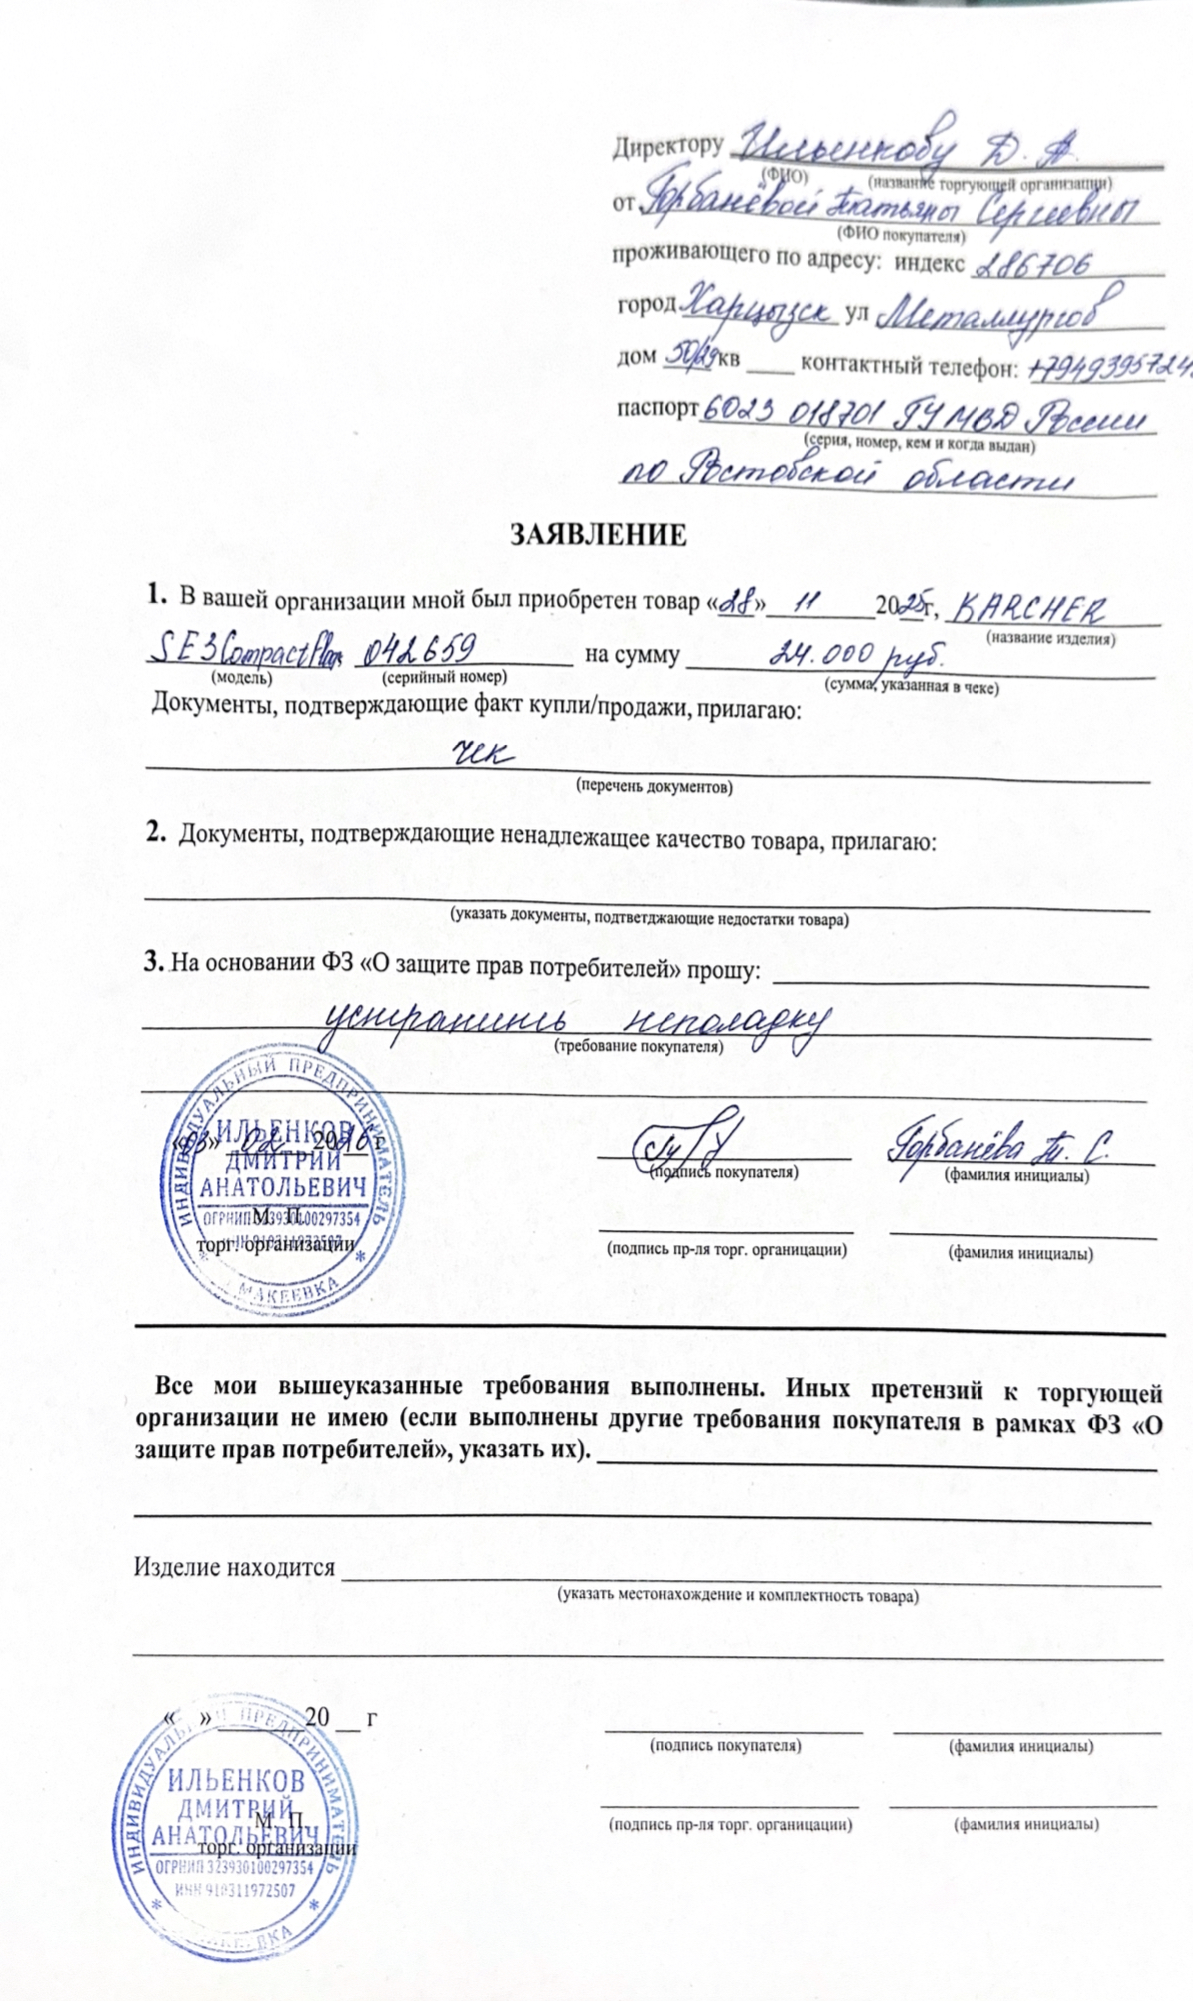 Директору Ильенкову Д. А.
(ФИО) (название торгующей организации)
от Горбанёвой Татьяны Сергеевны
(ФИО покупателя)
проживающего по адресу: индекс 286706
город Харцызск ул Металлургов
дом 50/29 кв ____ контактный телефон:
паспорт 6023 018701 ГУ МВД России
(серия, номер, кем и когда выдан)
по Ростовской области
ЗАЯВЛЕНИЕ
1. В вашей организации мной был приобретен товар «28» 11 2025г, KARCHER
(название изделия)
SE 3 Compact 042659 на сумму 24.000 руб.
(модель) (серийный номер) (сумма, указанная в чеке)
Документы, подтверждающие факт купли/продажи, прилагаю:
чек
(перечень документов)
2. Документы, подтверждающие ненадлежащее качество товара, прилагаю:
(указать документы, подтветджающие недостатки товара)
3. На основании ФЗ «О защите прав потребителей» прошу:
устранить неполадку
(требование покупателя)
«03» 02 2026 г Горбанёва Т. С.
(подпись покупателя) (фамилия инициалы)
М. П.
торг. организации
(подпись пр-ля торг. органицации) (фамилия инициалы)
ИНДИВИДУАЛЬНЫЙ ПРЕДПРИНИМАТЕЛЬ
ИЛЬЕНКОВ
ДМИТРИЙ
АНАТОЛЬЕВИЧ
ОГРНИП 323930100297354
МАКЕЕВКА
Все мои вышеуказанные требования выполнены. Иных претензий к торгующей
организации не имею (если выполнены другие требования покупателя в рамках ФЗ «О
защите прав потребителей», указать их).
Изделие находится
(указать местонахождение и комплектность товара)
« » ______ 20 __ г
(подпись покупателя) (фамилия инициалы)
М. П.
торг. организации
(подпись пр-ля торг. органицации) (фамилия инициалы)
ИНДИВИДУАЛЬНЫЙ ПРЕДПРИНИМАТЕЛЬ
ИЛЬЕНКОВ
ДМИТРИЙ
АНАТОЛЬЕВИЧ
ОГРНИП 323930100297354
ИНН 910311972507